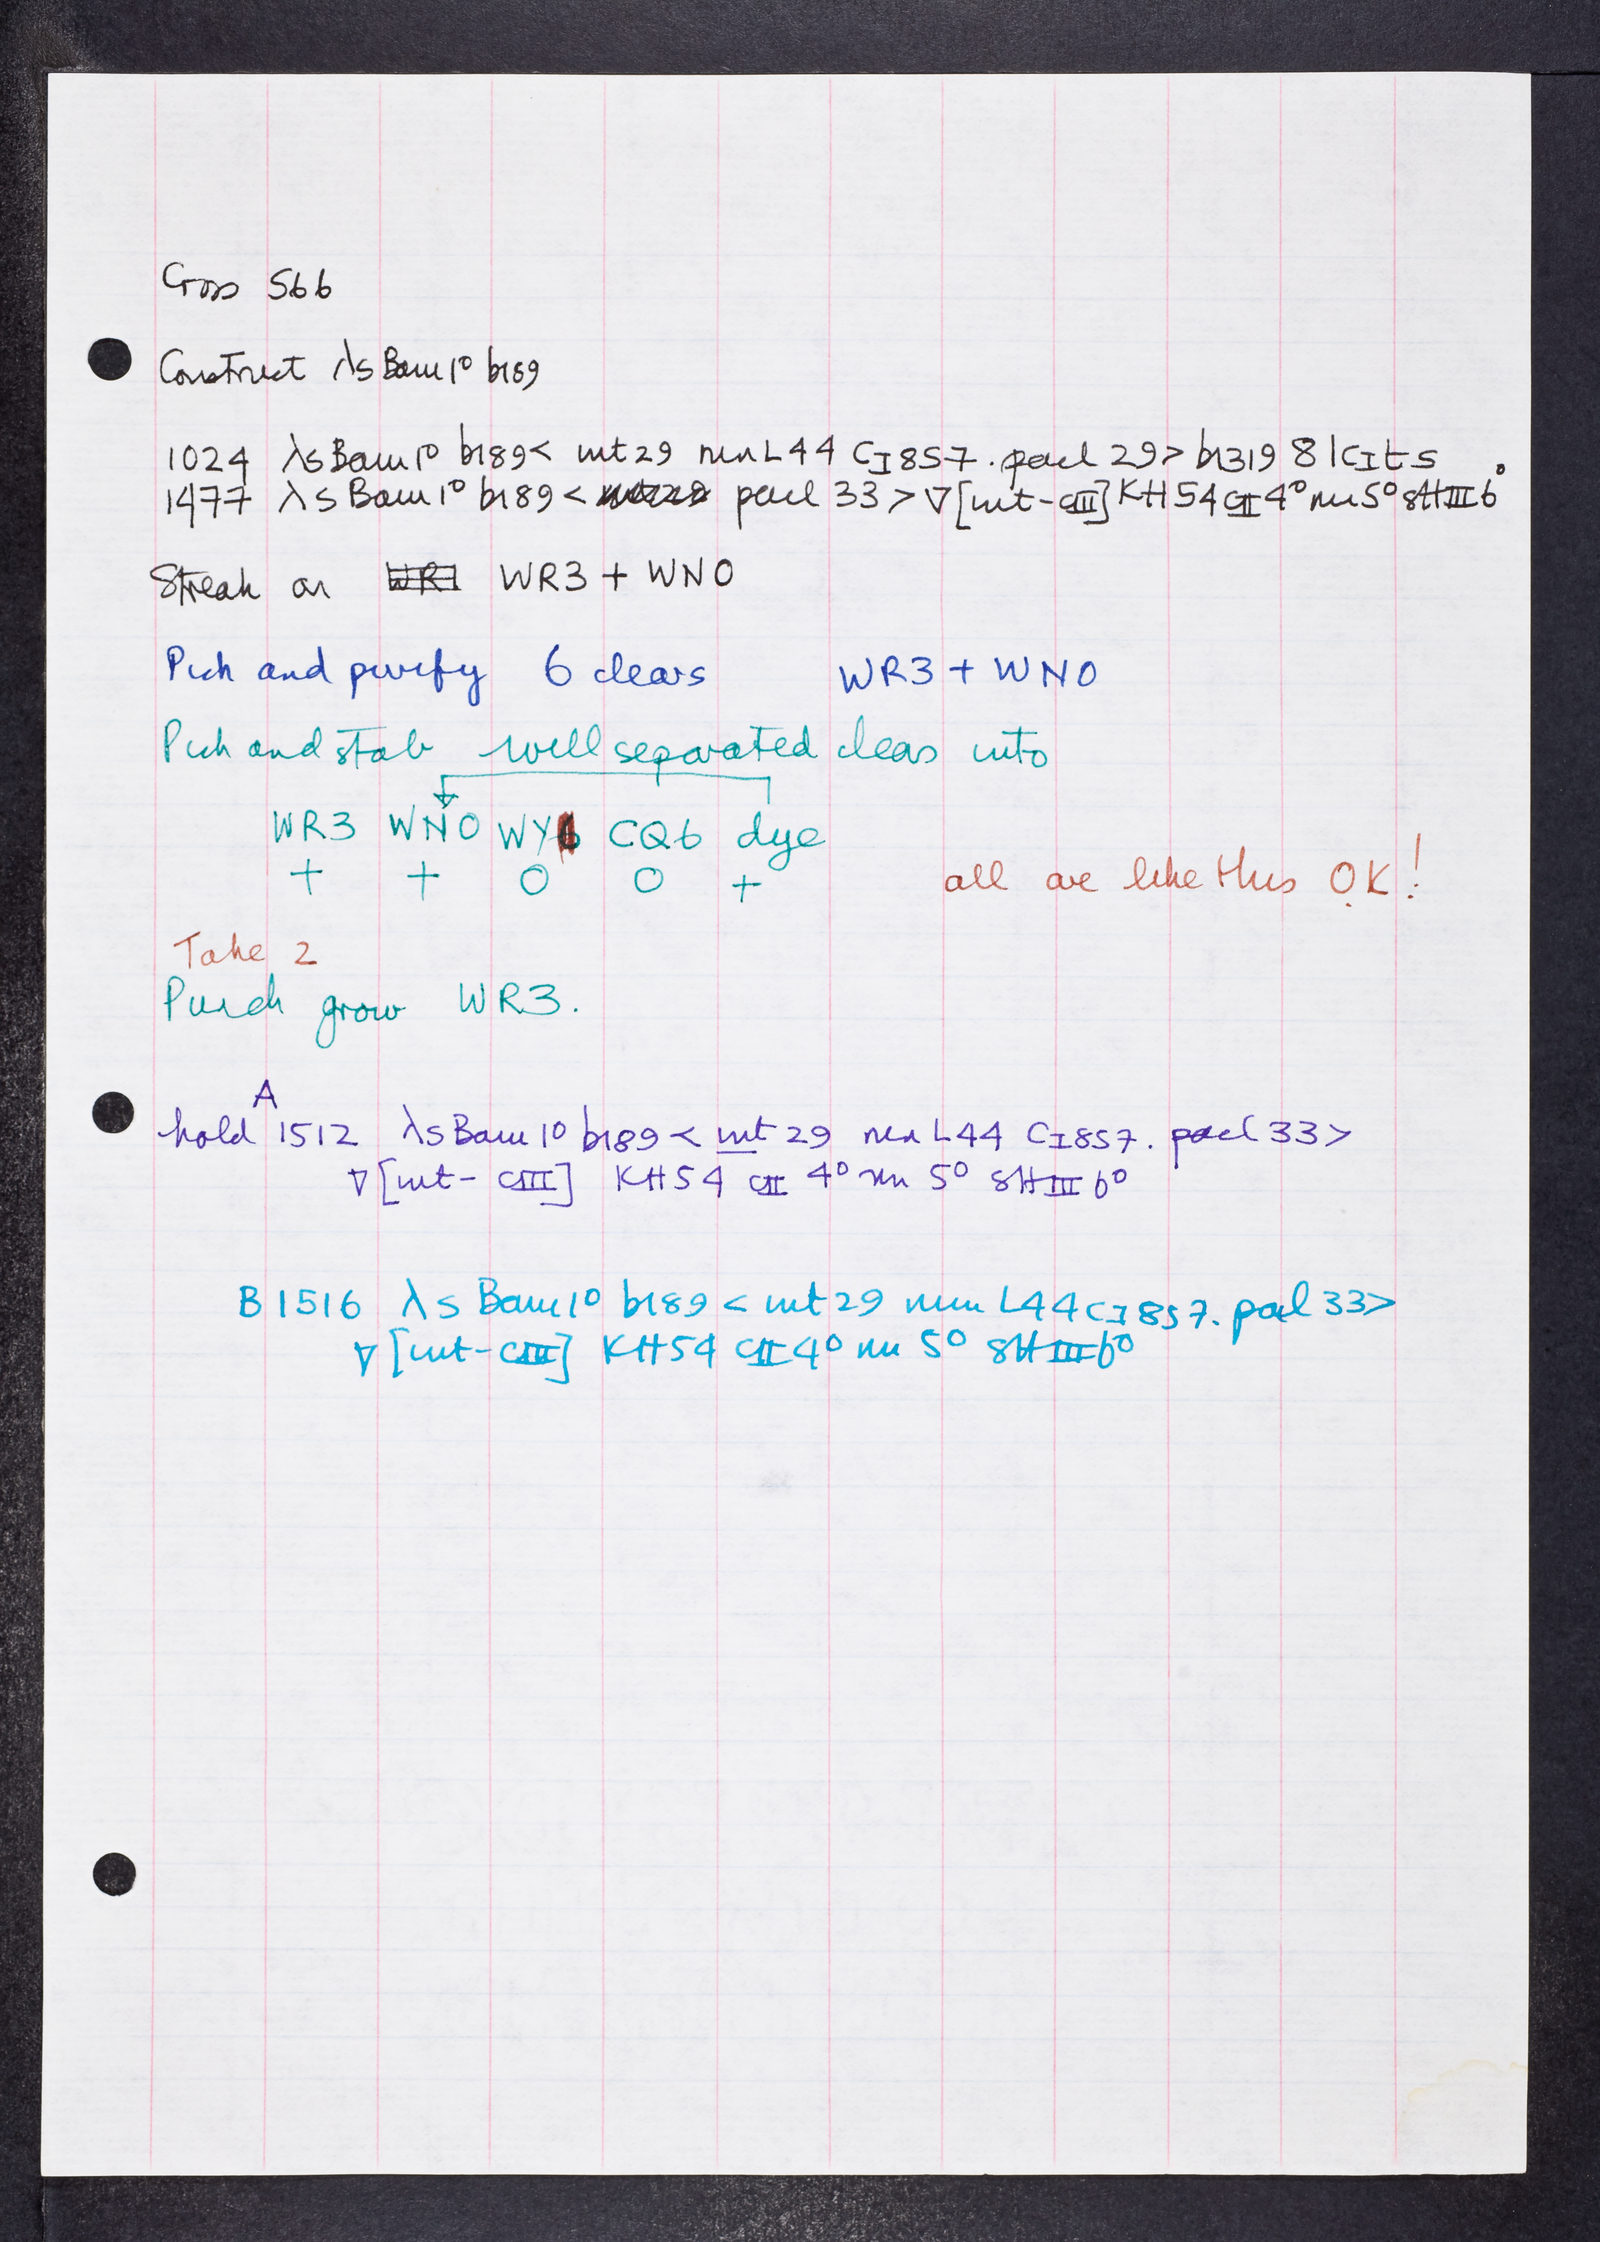 Cross 566
Construct λsBam1° b189
1024 λsBam1° b189< int29 ninL44 cI857. pael 29> b1319 81cIts
1477 λsBam1° b189< pael 33> ∇[int-cIII] KH54 cII 4° nin5° sHIII6°
Streak on WR3 + WNO
Pick and purify 6 clears WR3 + WNO
Pick and stab well separated clears into
WR3 WNO WY6 CQ6 dye
+ + O O +
all are like this OK!
Take 2
Punch grow WR3.
A
hold 1512 λsBam1° b189< int29 ninL44 cI857. pael 33>
∇[int-cIII] KH54 cII 4° nin 5° sHIII6°
B 1516 λsBam1° b189< int29 nin L44 cI857. pael 33>
∇[int-cIII] KH54 cII 4° nin 5° sHIII6°